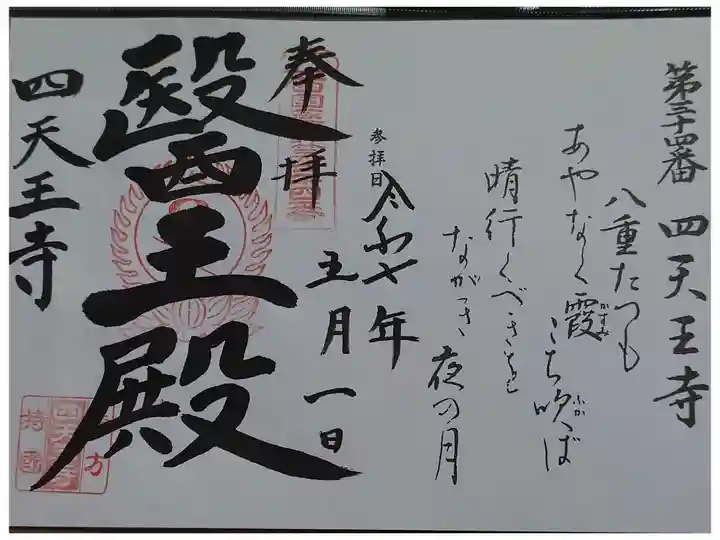 第三十四番 四天王寺
八重たつも
あやなく霞かすみ
こち吹ふかば
晴行くべきを
ながき
夜の月
参拝日 令和七年
五月一日
奉拝
醫王殿
四天王寺